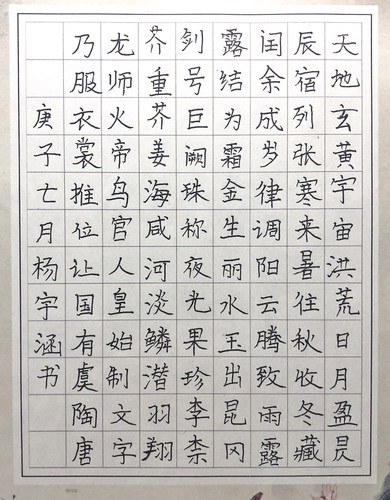 天地玄黄宇宙洪荒日月盈昃
辰宿列张寒来暑往秋收冬藏
闰余成岁律调阳云腾致雨露
露结为霜金生丽水玉出昆冈
剑号巨阙珠称夜光果珍李柰
芥重芥姜海咸河淡鳞潜羽翔
龙师火帝鸟官人皇始制文字
乃服衣裳推位让国有虞陶唐
庚子七月杨宇涵书